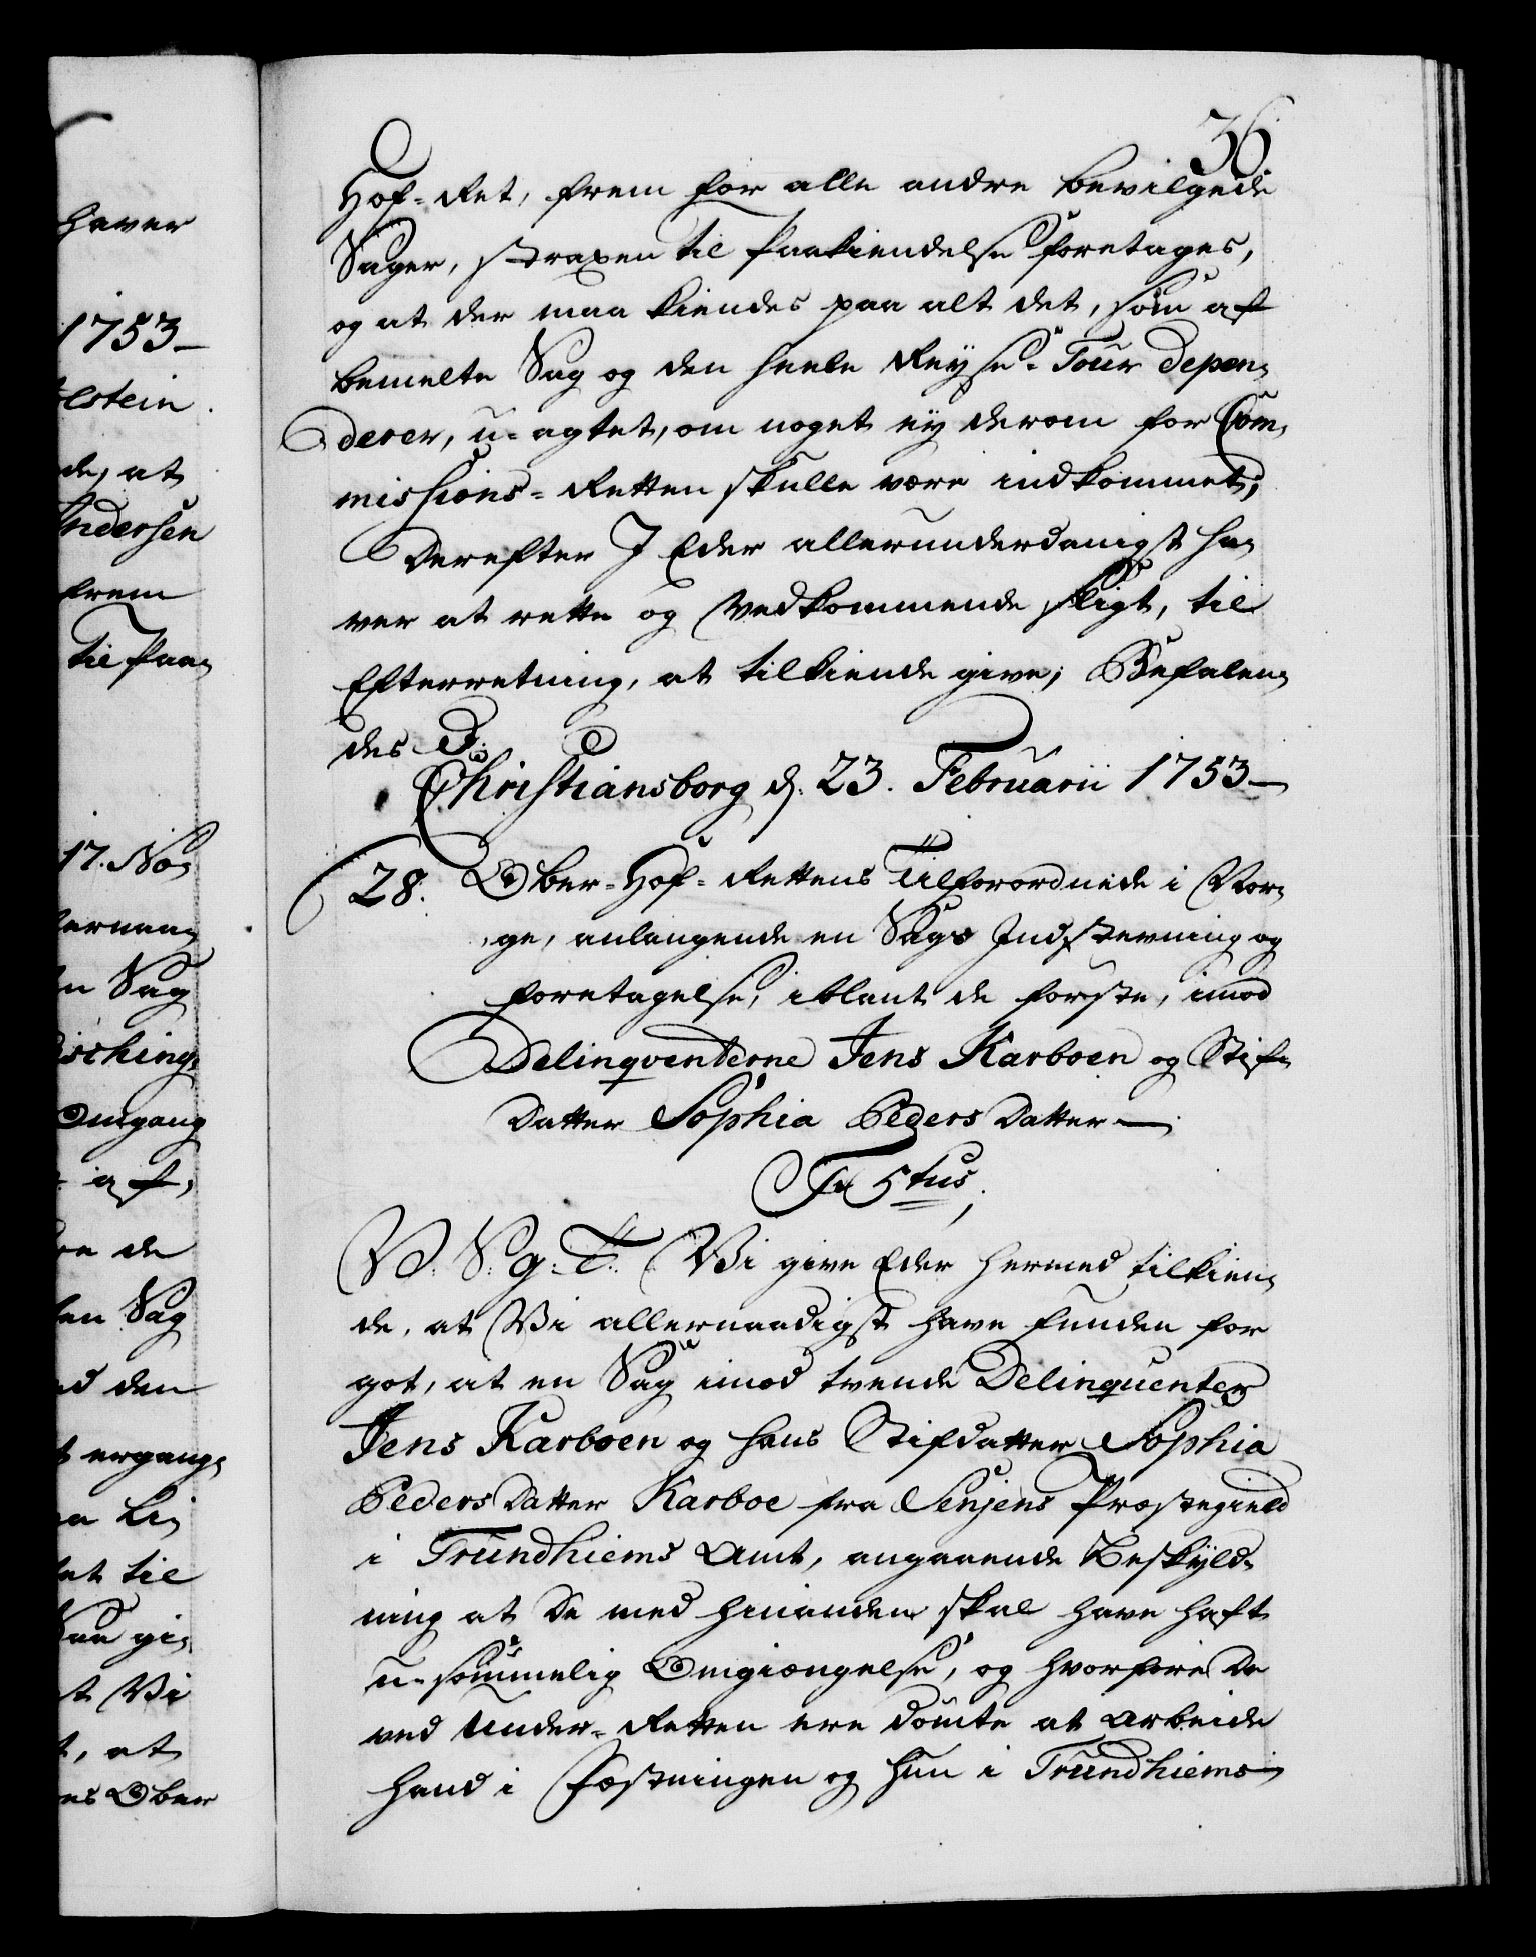 haver
1753
lstein
de, at
Andersen
frem
til Paa,
17. No,
n Sag
isching,
Omgang
af,
de
en Sag
d den
ergang,
Li,
et til
gi,
t Vi
t, at
es Ober
36
Hof-Ret, frem for alle andre bevilgede
Sager, straxen til Paakiendelse foretages,
og at der maa kiendes paa alt det, som af
bemelte Sag og den heele Reyse-Tour depen,
derer, u-agtet, om noget ey derom for Com,
missions-Retten skulle være indkommet;
Derefter I Eder allerunderdanigst ha,
ver at rette og Vedkommende sligt, til
Efterretning, at tilkiende give; Befalen,
des
Christiansborg d. 23. Februarii 1753
28. Ober-Hof-Rettens Tilforordnede i Nor,
ge, anlangende en Sags Indstevning og
foretagelse, iblant de første, imod
Delinqventerne Jens Karboen og Stif,
Datter Sophia Peders Datter
Fr 5tus
V. S. g. T. Vi give Eder hermed tilkien,
de, at Vi allernaadigst have funden for
got, at en Sag imod tvende Delinquenter
Jens Karboen og hans Stifdatter Sophia
Peders Datter Karboe fra Senjens Præstegield
i Trundhiems Amt, angaaende Beskyld,
ning at De med hinanden skal have haft
u-sømmelig Omgiængelse, og hvorfore De
ved Under-Retten ere dømte at Arbeide
hand i Fæstningen og hun i Trundhiems